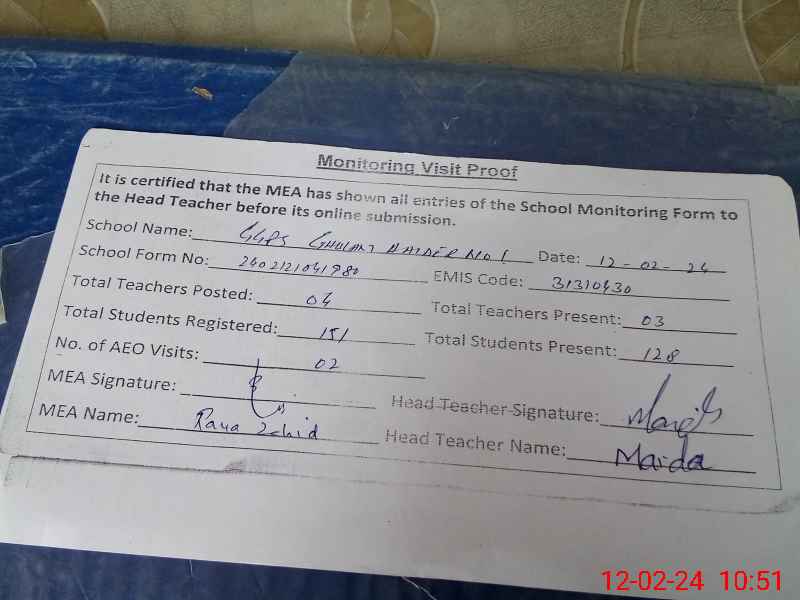 Monitoring Visit Proof
It is certified that the MEA has shown all entries of the School Monitoring Form to
the Head Teacher before its online submission.
School Name: GGPS GHULAM HAIDER NO 1 Date: 12-02-24
School Form No: 2402121041980 EMIS Code: 31310430
Total Teachers Posted: 04 Total Teachers Present: 03
Total Students Registered: 151 Total Students Present: 128
No. of AEO Visits: 02
MEA Signature: Head Teacher Signature:
MEA Name: Rana Head Teacher Name: Marda
12-02-24 10:51